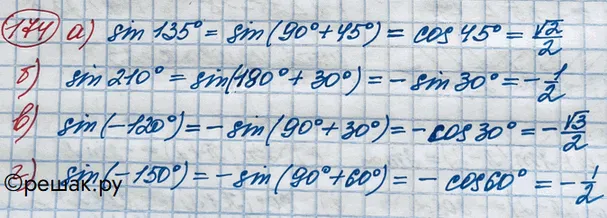 174 а) sin 135° = sin(90° + 45°) = cos 45° = √2/2
б) sin 210° = sin(180° + 30°) = - sin 30° = - 1/2
в) sin(-120°) = - sin(90° + 30°) = - cos 30° = - √3/2
г) sin(-150°) = - sin(90° + 60°) = - cos 60° = - 1/2
©решак.ру